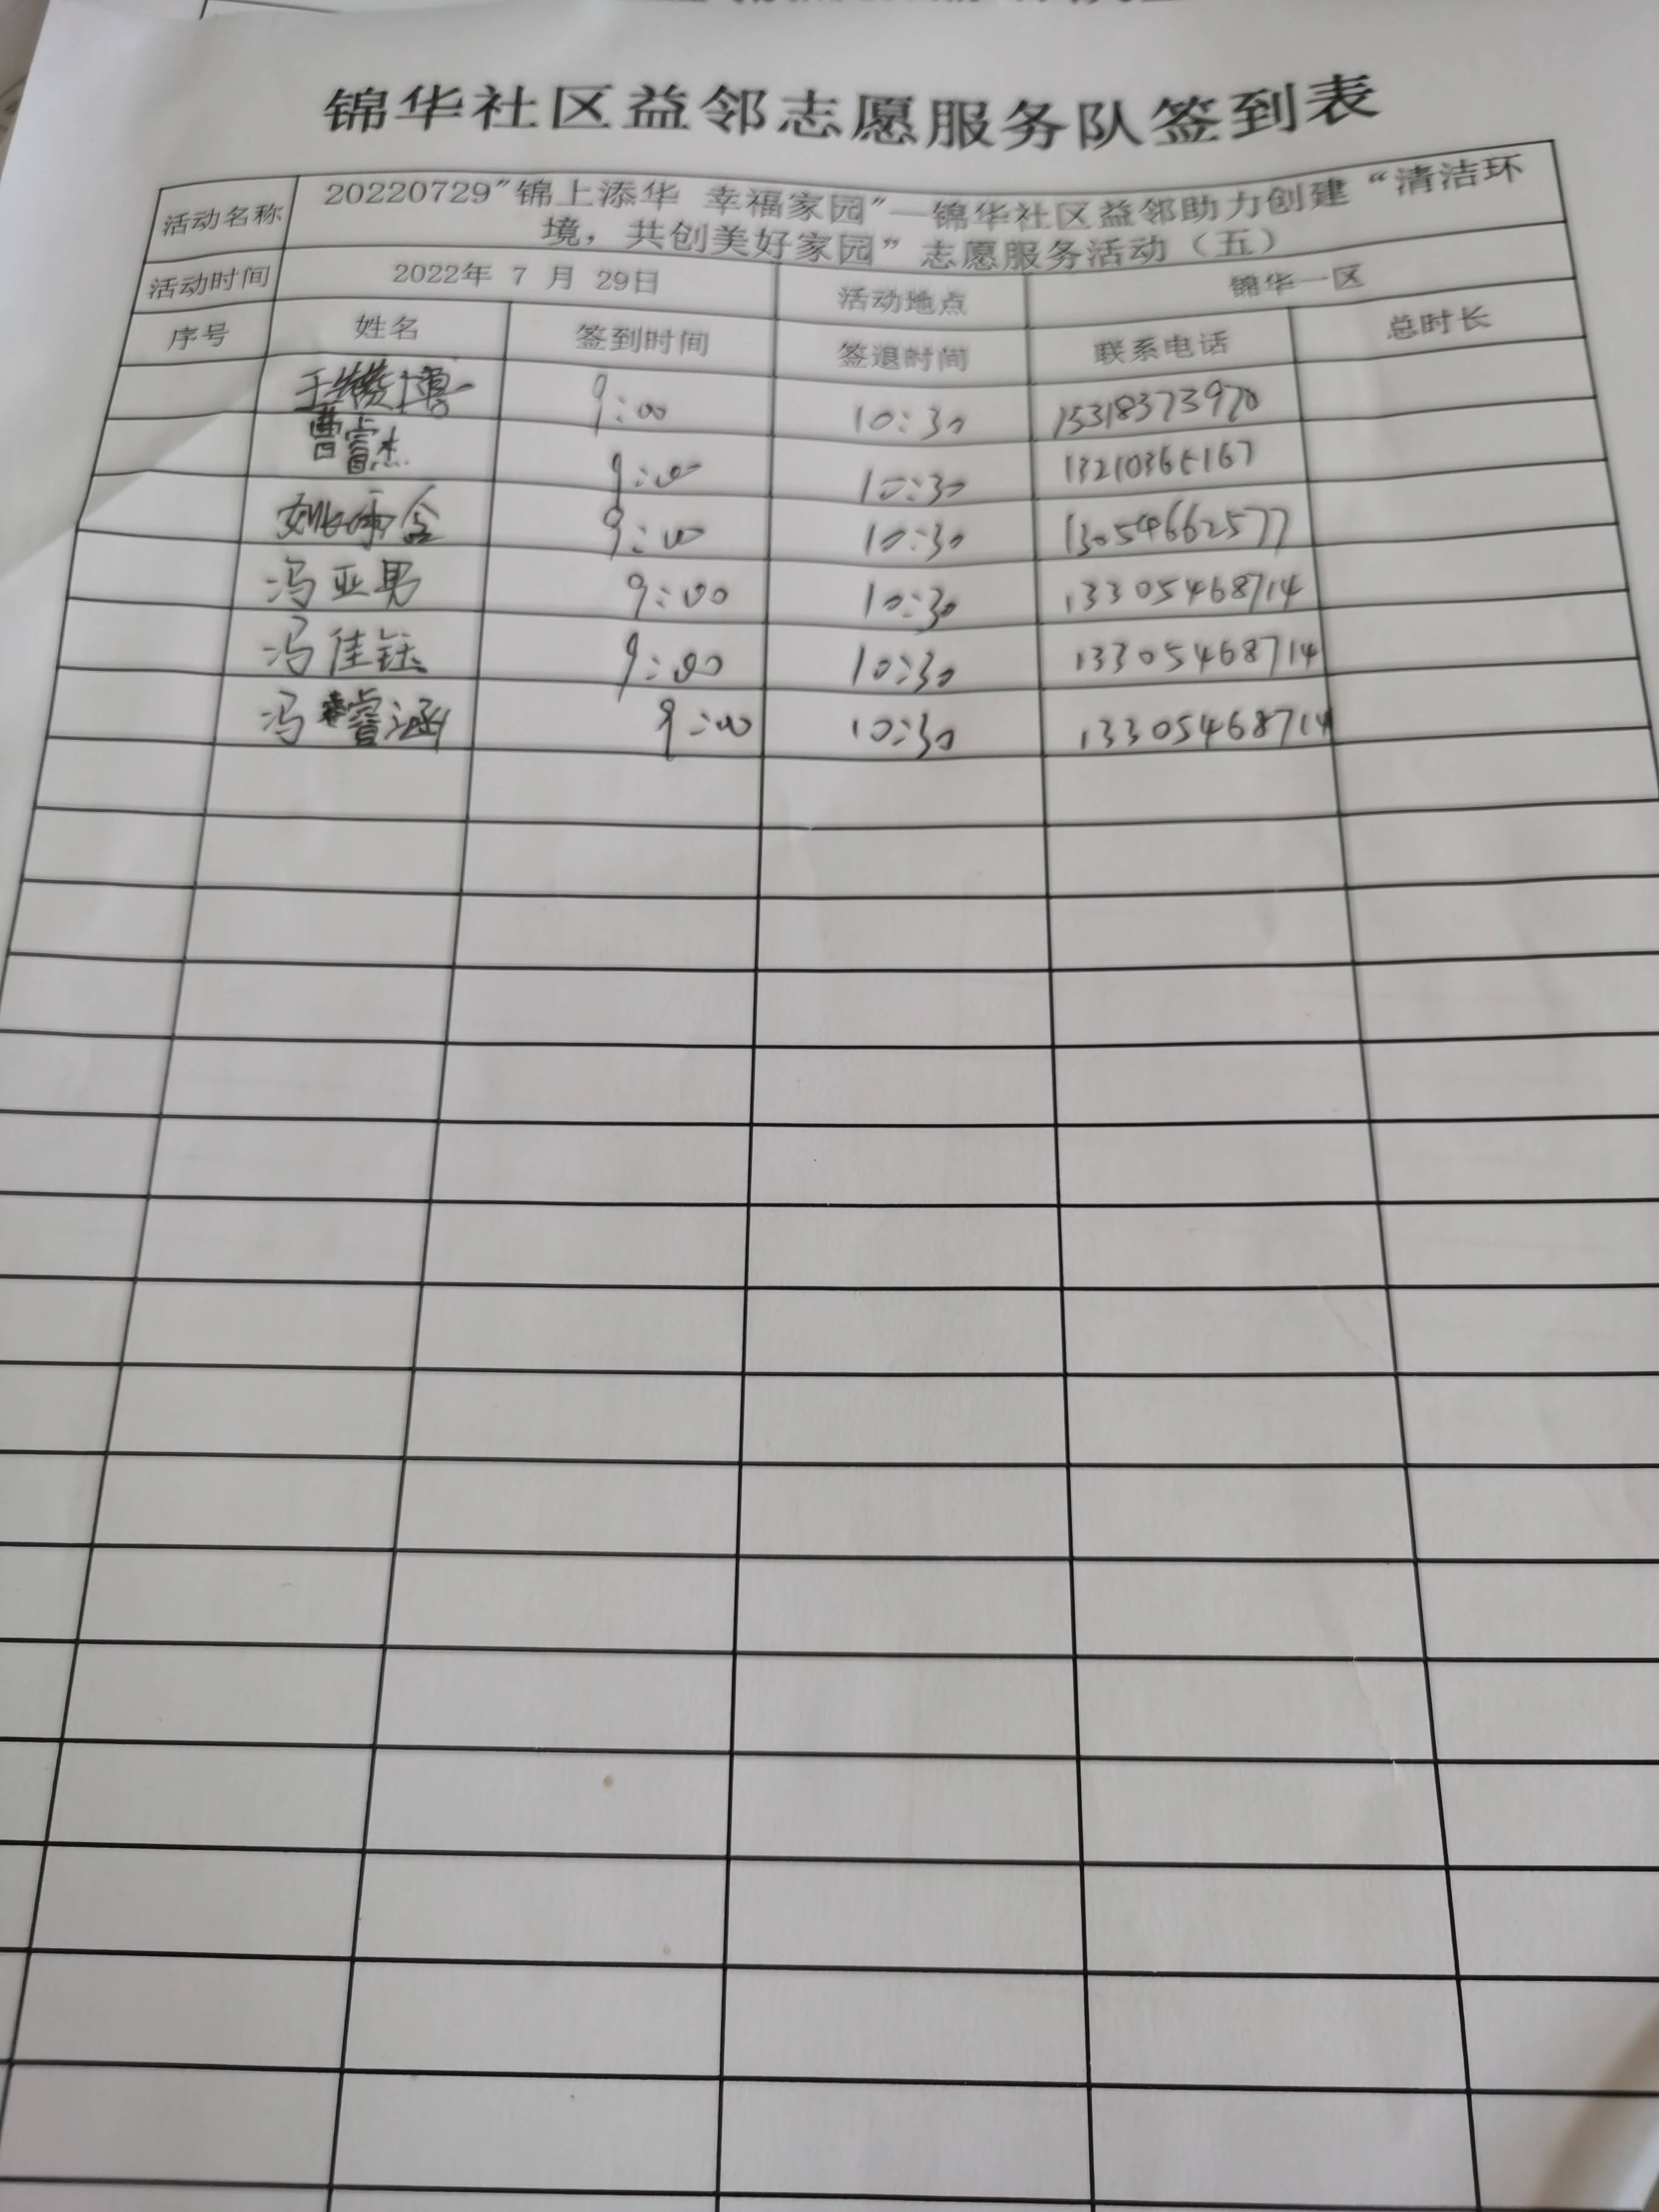 锦华社区益邻志愿服务队签到表
活动名称 20220729"锦上添华 幸福家园"—锦华社区益邻助力创建“清洁环
境，共创美好家园”志愿服务活动（五）
活动时间 2022年 7 月 29日 活动地点 锦华一区
序号 姓名 签到时间 签退时间 联系电话 总时长
9:00 10:30 15318373970
曹睿杰 9:00 10:30
9:00 10:30 13054662577
冯亚男 9:00 10:30 13305468714
冯佳钰 9:00 10:30 13305468714
冯睿涵 9:00 10:30 13305468714